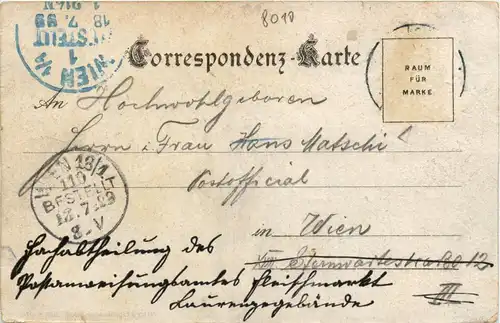 8010
WIEN 1/1
1
BESTELLT
18.7.99
Correspondenz-Karte
RAUM
FÜR
MARKE
An Hochwohlgeboren
Herrn i Frau Hans Matschi
Postofficial
WIEN 18/1
110
BESTELLT
8-V
in Wien
VIII Sternwartestraße 12
Fachabtheilung des
Postanweisungsamtes Fleischmarkt III
Laurenzegebände